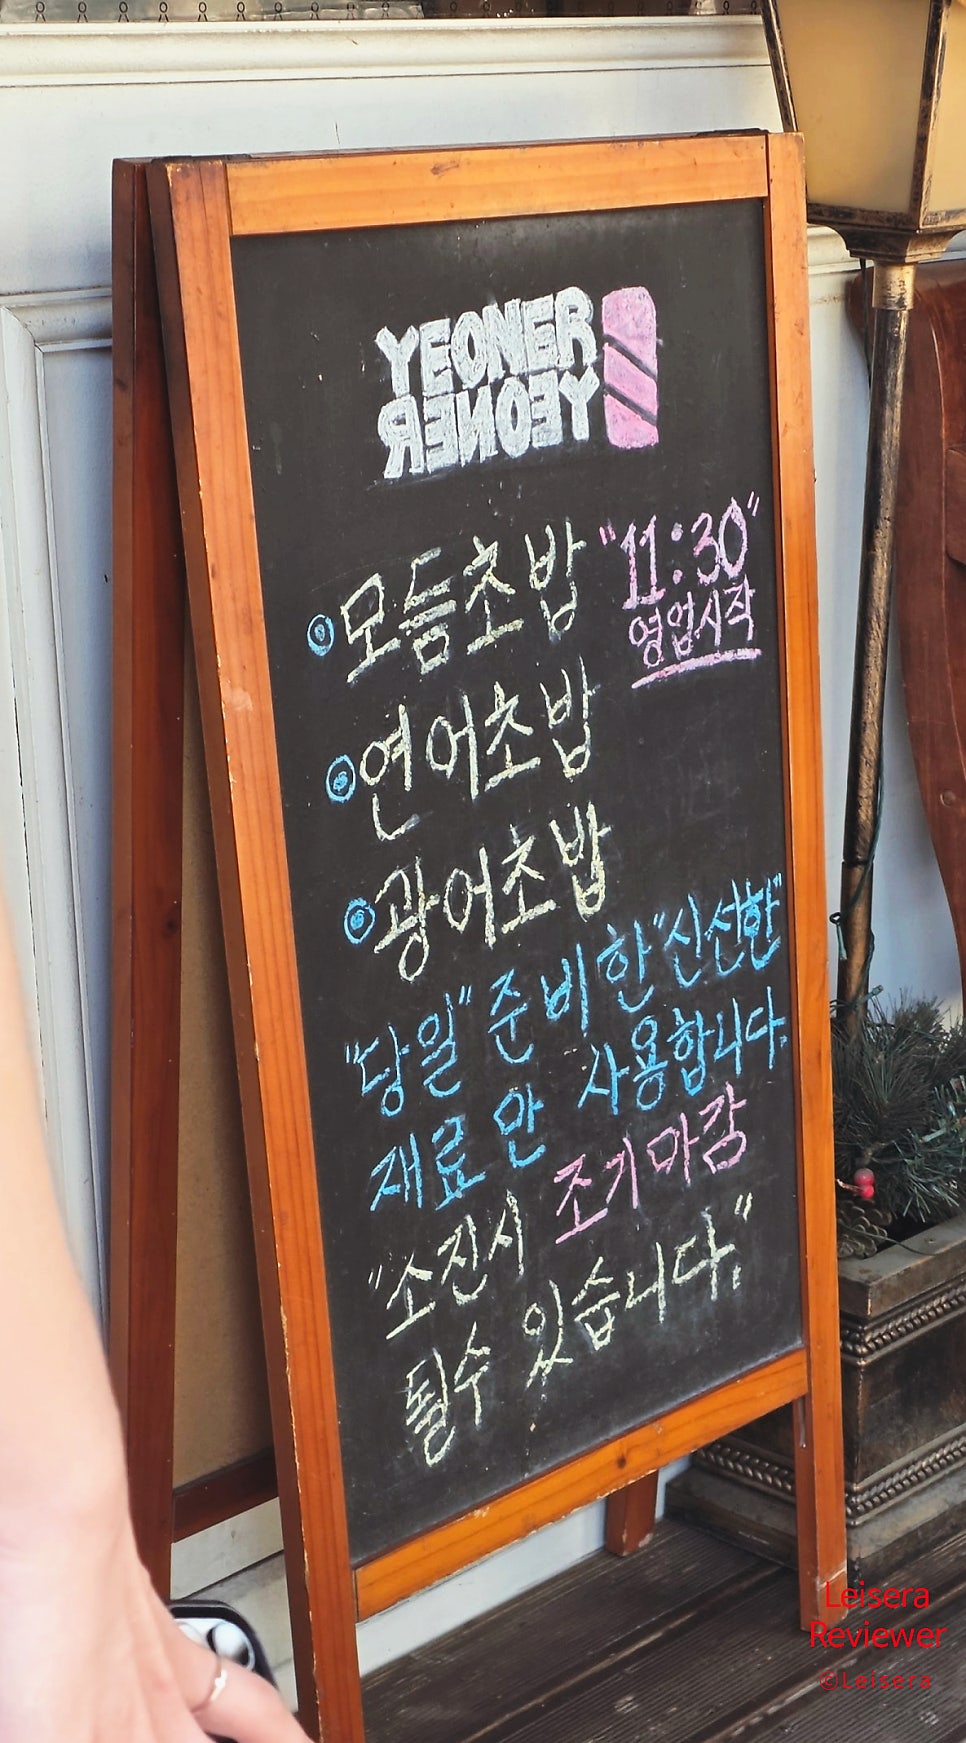 YEONER
YEONER
모듬초밥
"11:30"
영업시작
연어초밥
광어초밥
"당일" 준비한 "신선한"
재료 만 사용합니다.
"소진시 조기마감
될수 있습니다."
Leisera
Reviewer
©Leisera